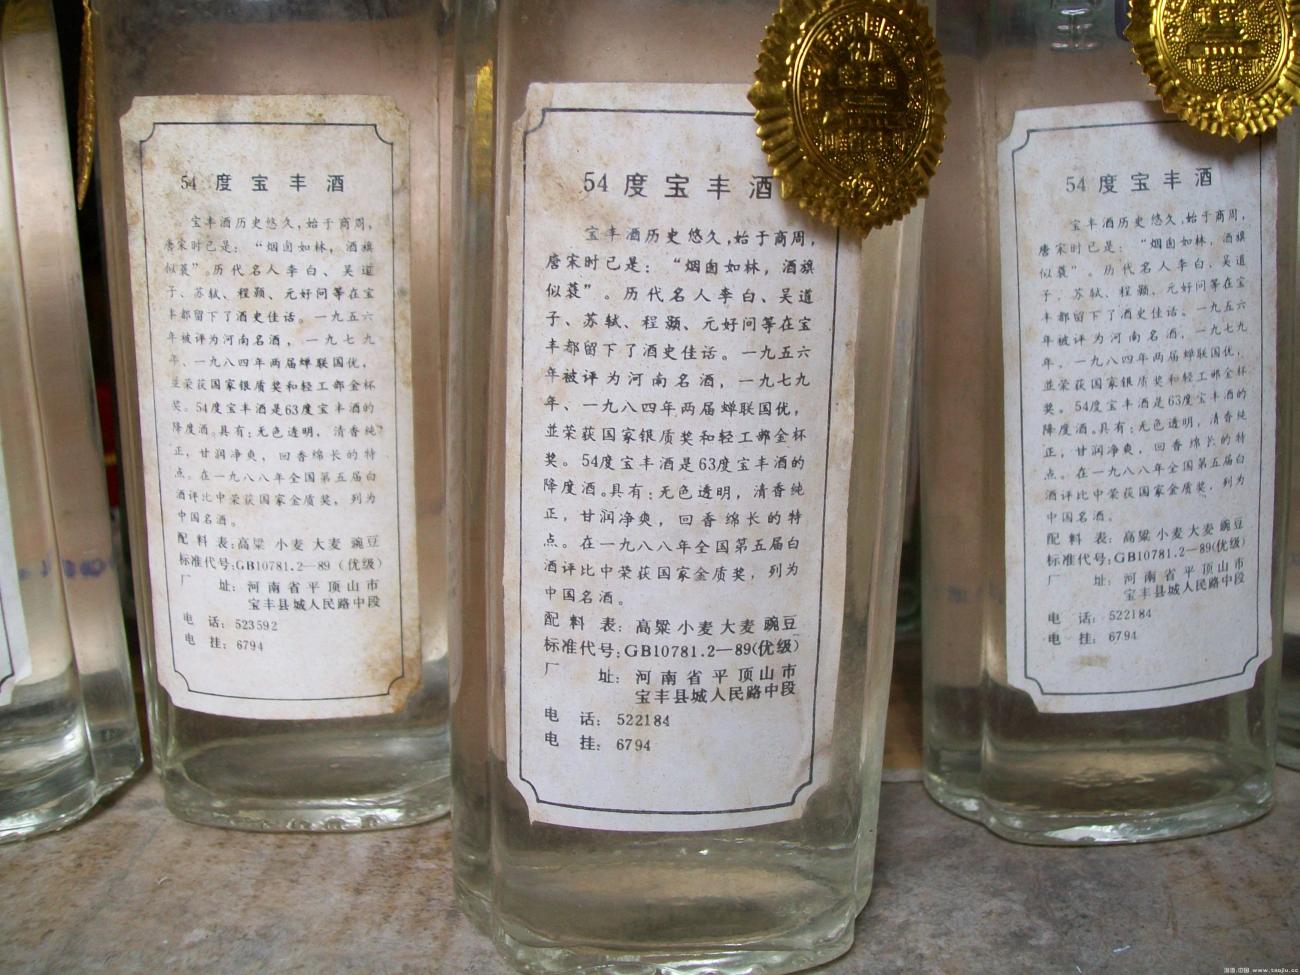 54 度宝丰酒
宝丰酒历史悠久,始于商周,
唐宋时已是：“烟囱如林，酒旗
似蓑”。历代名人李白、吴道
子、苏轼、程颢、元好问等在宝
丰都留下了酒史佳话。一九五六
年被评为河南名酒，一九七九
年、一九八四年两届蝉联国优，
並荣获国家银质奖和轻工部金杯
奖。54度宝丰酒是63度宝丰酒的
降度酒。具有：无色透明，清香纯
正，甘润净爽，回香绵长的特
点。在一九八八年全国第五届白
酒评比中荣获国家金质奖，列为
中国名酒。
配料表：高粱 小麦 大麦 豌豆
标准代号：GB10781.2—89(优级)
厂 址：河南省平顶山市
宝丰县城人民路中段
电 话：523592
电 挂：6794
54 度宝丰酒
宝丰酒历史悠久,始于商周,
唐宋时已是：“烟囱如林，酒旗
似蓑”。历代名人李白、吴道
子、苏轼、程颢、元好问等在宝
丰都留下了酒史佳话。一九五六
年被评为河南名酒，一九七九
年、一九八四年两届蝉联国优，
並荣获国家银质奖和轻工部金杯
奖。54度宝丰酒是63度宝丰酒的
降度酒。具有：无色透明，清香纯
正，甘润净爽，回香绵长的特
点。在一九八八年全国第五届白
酒评比中荣获国家金质奖，列为
中国名酒。
配料表：高粱 小麦 大麦 豌豆
标准代号：GB10781.2—89(优级)
厂 址：河南省平顶山市
宝丰县城人民路中段
电 话：522184
电 挂：6794
54 度宝丰酒
宝丰酒历史悠久,始于商周,
唐宋时已是：“烟囱如林，酒旗
似蓑”。历代名人李白、吴道
子、苏轼、程颢、元好问等在宝
丰都留下了酒史佳话。一九五六
年被评为河南名酒，一九七九
年、一九八四年两届蝉联国优，
並荣获国家银质奖和轻工部金杯
奖。54度宝丰酒是63度宝丰酒的
降度酒。具有：无色透明，清香纯
正，甘润净爽，回香绵长的特
点。在一九八八年全国第五届白
酒评比中荣获国家金质奖，列为
中国名酒。
配料表：高粱 小麦 大麦 豌豆
标准代号：GB10781.2—89(优级)
厂 址：河南省平顶山市
宝丰县城人民路中段
电 话：522184
电 挂：6794
www.taojiu.cc